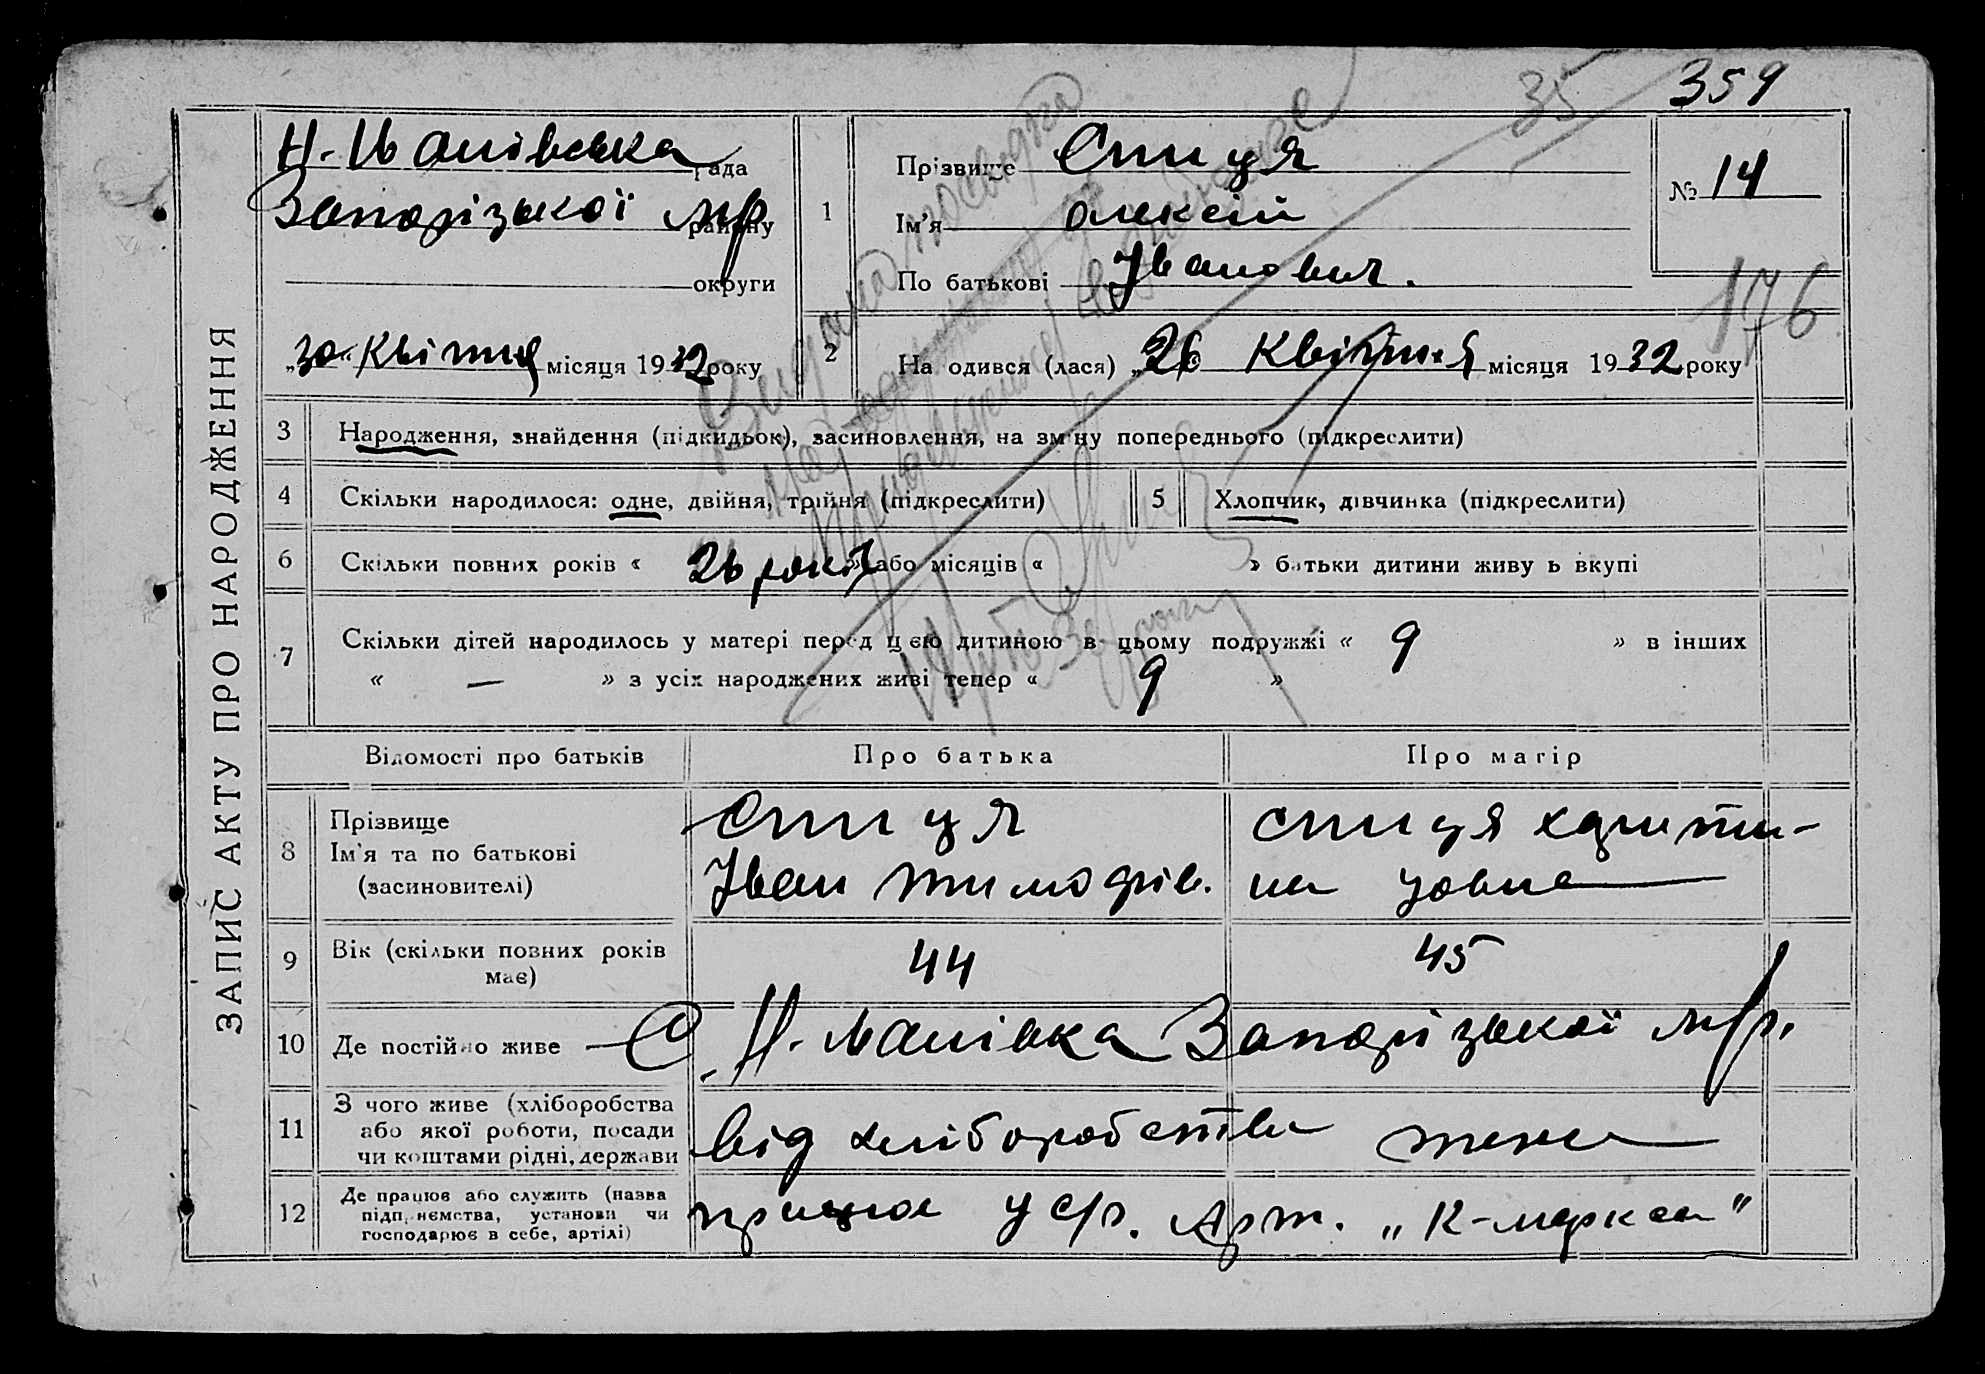 35 359
ЗАПИС АКТУ ПРО НАРОДЖЕННЯ
Н-Іванівська рада
Запорізької м/р району
округи
„30“ Квітня місяця 1932 року
1
Прізвище Спиця
Ім'я Олексій
По батькові Іванович.
№ 14
176
2
Народився (лася) „26 Квітня місяця 1932 року
3 Народження, знайдення (підкидьок), засиновлення, на зміну попереднього (підкреслити)
4 Скільки народилося: одне, двійня, трійня (підкреслити) 5 Хлопчик, дівчинка (підкреслити)
6 Скільки повних років « 26 років » або місяців « » батьки дитини живуть вкупі
7 Скільки дітей народилось у матері перед цією дитиною в цьому подружжі « 9 » в інших
« — » з усіх народжених живі тепер « 9 »
Відомості про батьків Про батька Про матір
8 Прізвище
Ім'я та по батькові
(засиновителі)
Спиця
Іван Тимофів.
Спиця Христи-
на
9 Вік (скільки повних років
має)
44 45
10 Де постійно живе С. Н-Іванівка Запорізької м/р.
11 З чого живе (хліборобства
або якої роботи, посади
чи коштами рідні, держави
від хліборобства
12 Де працює або служить (назва
підприємства, установи чи
господарює в себе, артілі)
працює у с/г. Арт. „К-Маркса"